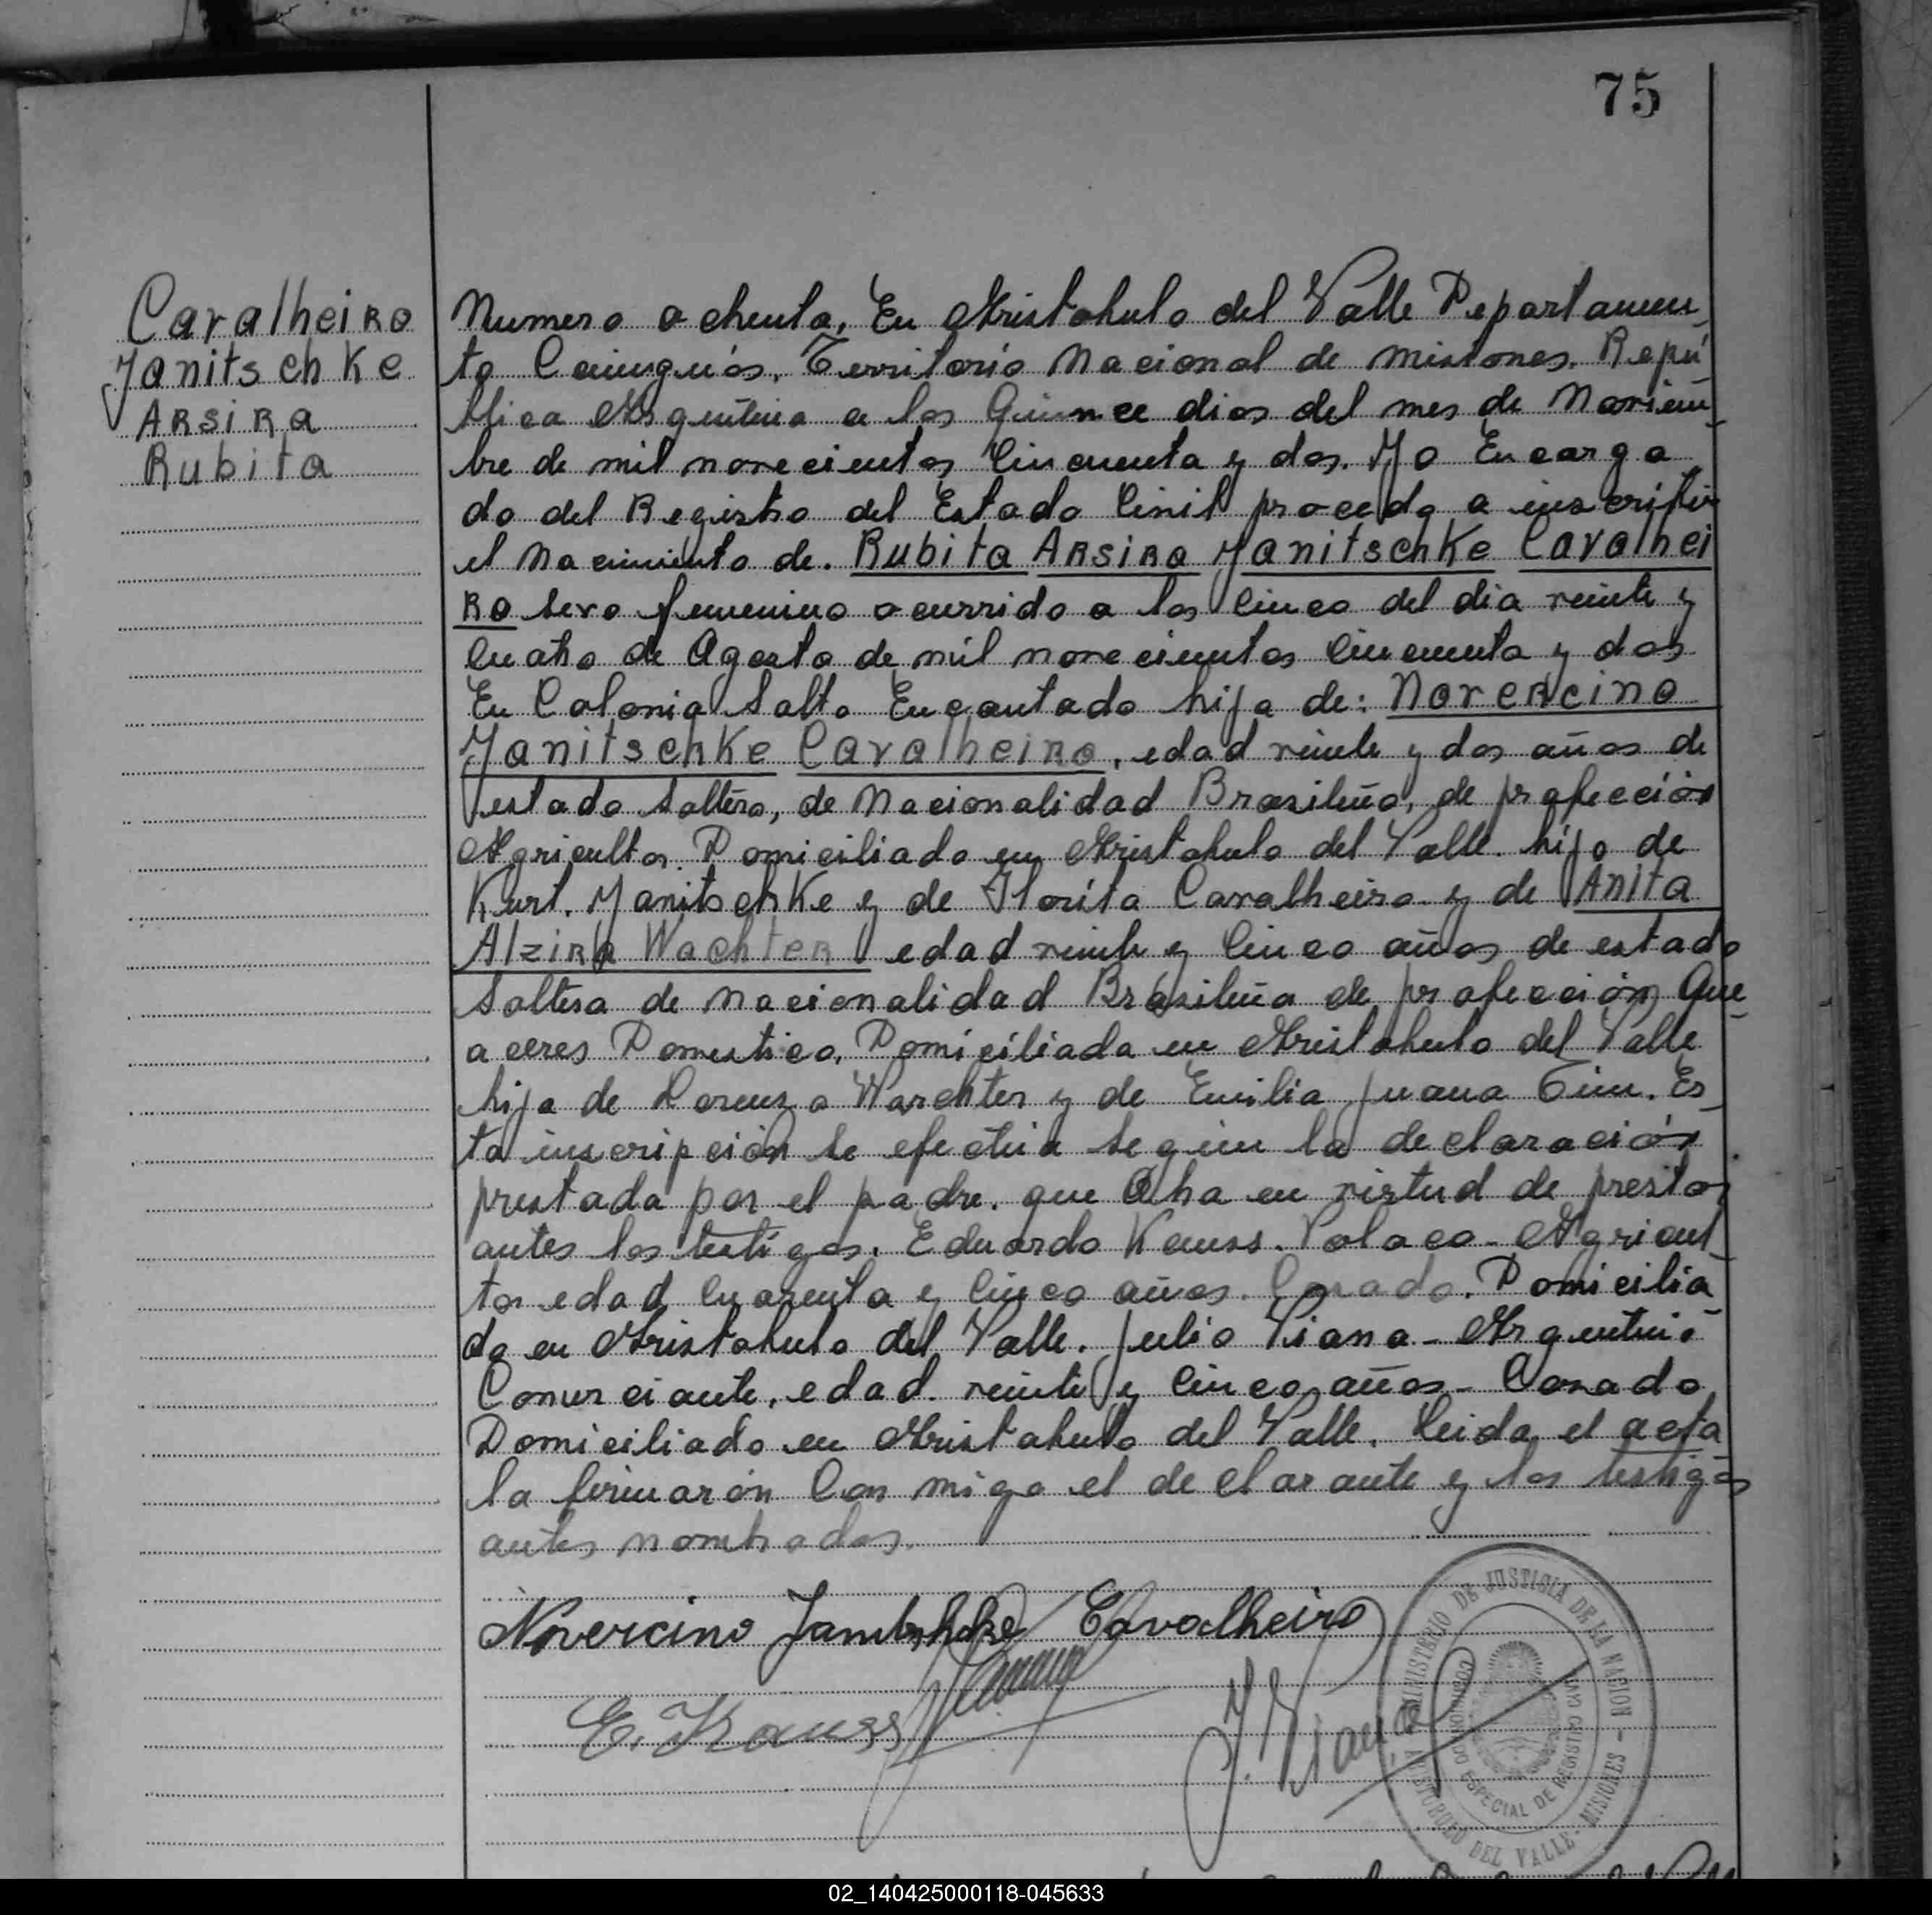 75
Cavalheiro
Janitschke
Arsira
Rubita
Numero ochenta. En Aristobulo del Valle Departamen
to Cainguás. Territorio Nacional de misiones. Repú
blica Argentina a los Quince dias del mes de Noviem
bre de mil novecientos Cincuenta y dos. Yo Encarga
do del Registro del Estado Civil procedo a inscribir
el Nacimiento de. Rubita Arsira Janitschke Cavalhei
ro sexo femenino ocurrido a las Cinco del dia veinte y
Cuatro de Agosto de mil novecientos Cincuenta y dos
En Colonia Salto Encantado hija de: Novercino
Janitschke Cavalheiro, edad veinte y dos años de
estado Soltero, de Nacionalidad Brasileño, de profección
Agricultor. Domiciliado en Aristobulo del Valle. hijo de
Kurt. Janitschke y de Florita Cavalheiro y de Anita
Alzira Wachter edad veinte y Cinco años de estado
Soltera de Nacionalidad Brasileña de profección Que
aceres Domestico, Domiciliada en Aristobulo del Valle
hija de Lorenzo Warchter y de Emilia Juana Tim. Es
ta inscripción se efectúa según la declaración
prestada por el padre. que Obra en virtud de prestar
antes los testigos. Eduardo Kauss. Polaco - Agricul
tor edad Cuarenta y Cinco años. Casado. Domicilia
do en Aristobulo del Valle. Julio Viana - Argentino
Comerciante, edad. veinte y Cinco años - Casado
Domiciliado en Aristobulo del Valle. Leida el acta
la firmarón Con migo el declarante y los testigos
antes nombrados.
Novercino Janitschke Cavalheiro
E. Krauss
J. Viana
MINISTERIO DE JUSTICIA DE LA NACION
ESPECIAL DE REGISTRO CIVIL
ARISTOBULO DEL VALLE - MISIONES
02_140425000118-045633